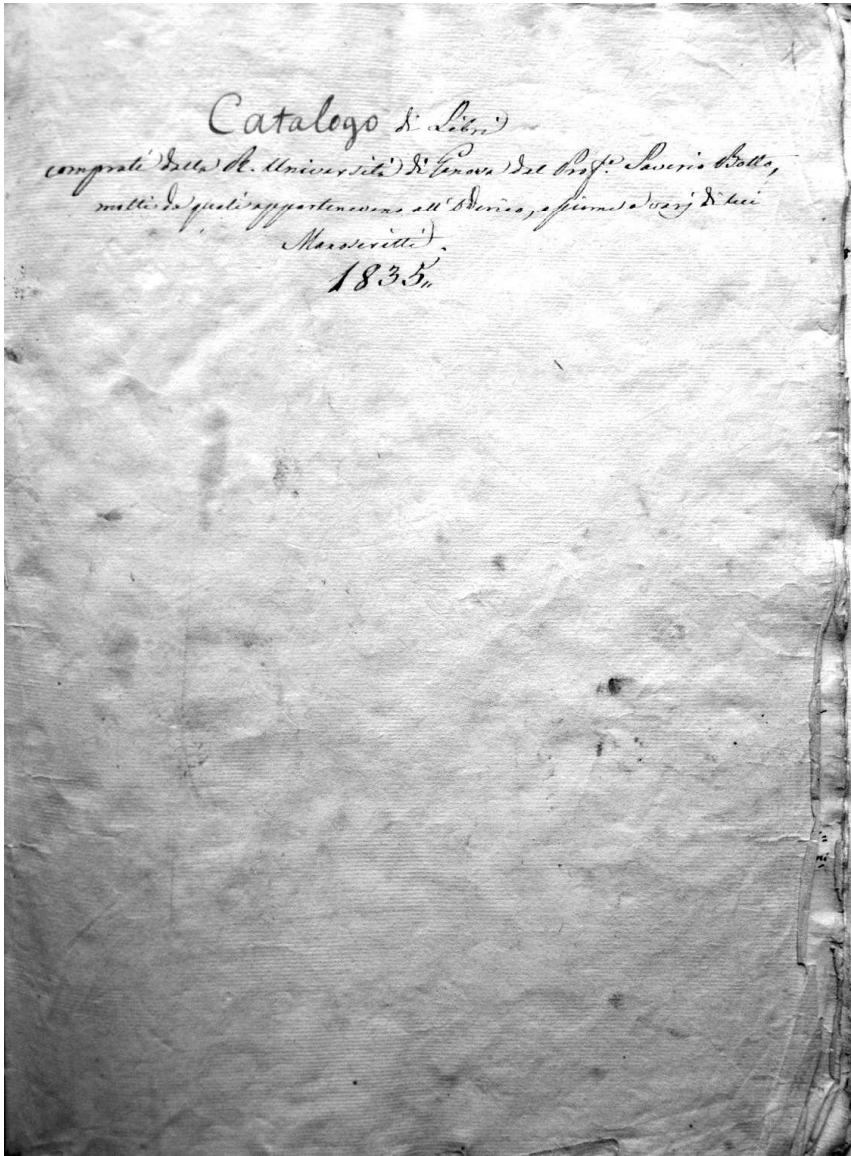 Catalogo di Libri
comprati dalla R. Università di Genova dal Prof.e Saverio Botto,
molti de quali appartenevano all'Oderico, e varj di lui
Manoscritti.
1835